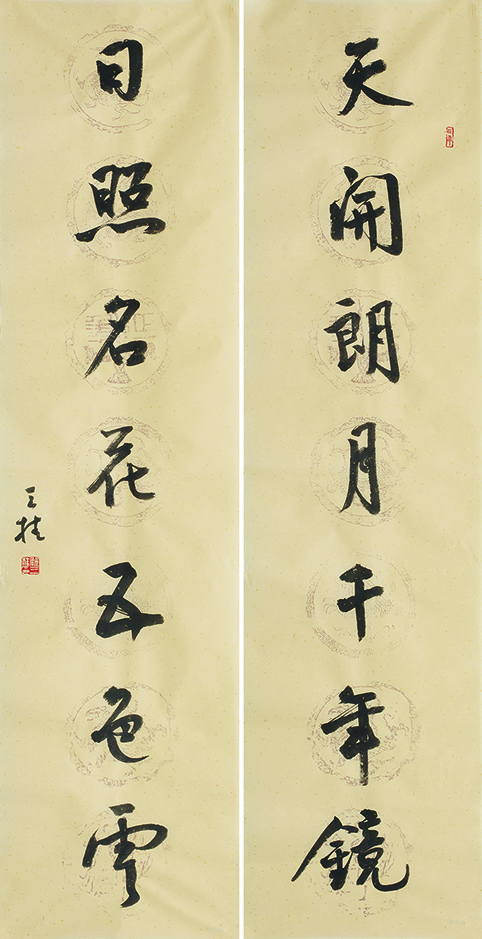 天開朗月千年鏡
日照名花五色雲